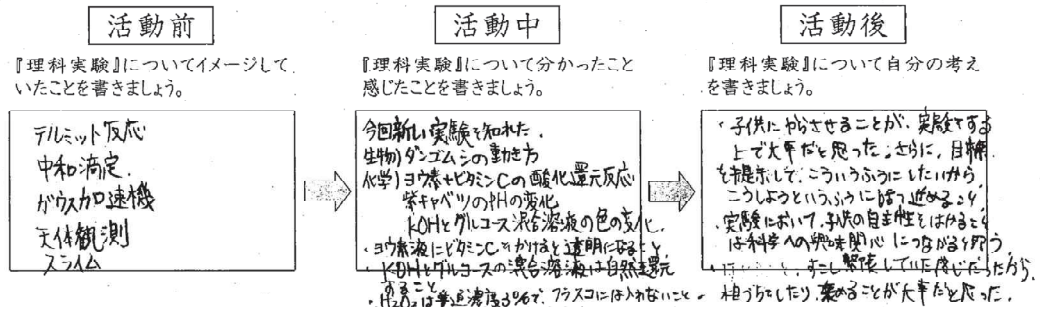 活動前
『理科実験』についてイメージして
いたことを書きましょう。
テルミット反応
中和滴定.
ガウス加速機
天体観測
スライム
活動中
『理科実験』について分かったこと
感じたことを書きましょう。
今回新しい実験を知れた.
生物)ダンゴムシの動き方
化学)ヨウ素+ビタミンCの酸化還元反応
紫キャベツのPHの変化
KOHとグルコース混合溶液の色の変化.
・ヨウ素液にビタミンCをかけると透明になること
・KOHとグルコースの混合溶液は自然還元
すること
・H₂O₂は普通濃度3%で、フラスコには入れないこと
活動後
『理科実験』について自分の考え
を書きましょう。
・子供にやらせることが、実験をする
上で大事だと思った。さらに、目標
を提示して、こういうふうにしたいから
こうしようというふうに 進めること
・実験において、子供の自主性をはかること
は科学への興味関心につながると思う
すこし緊張していた感じだったから、
相づちをしたり、褒めることが大事だと思った.